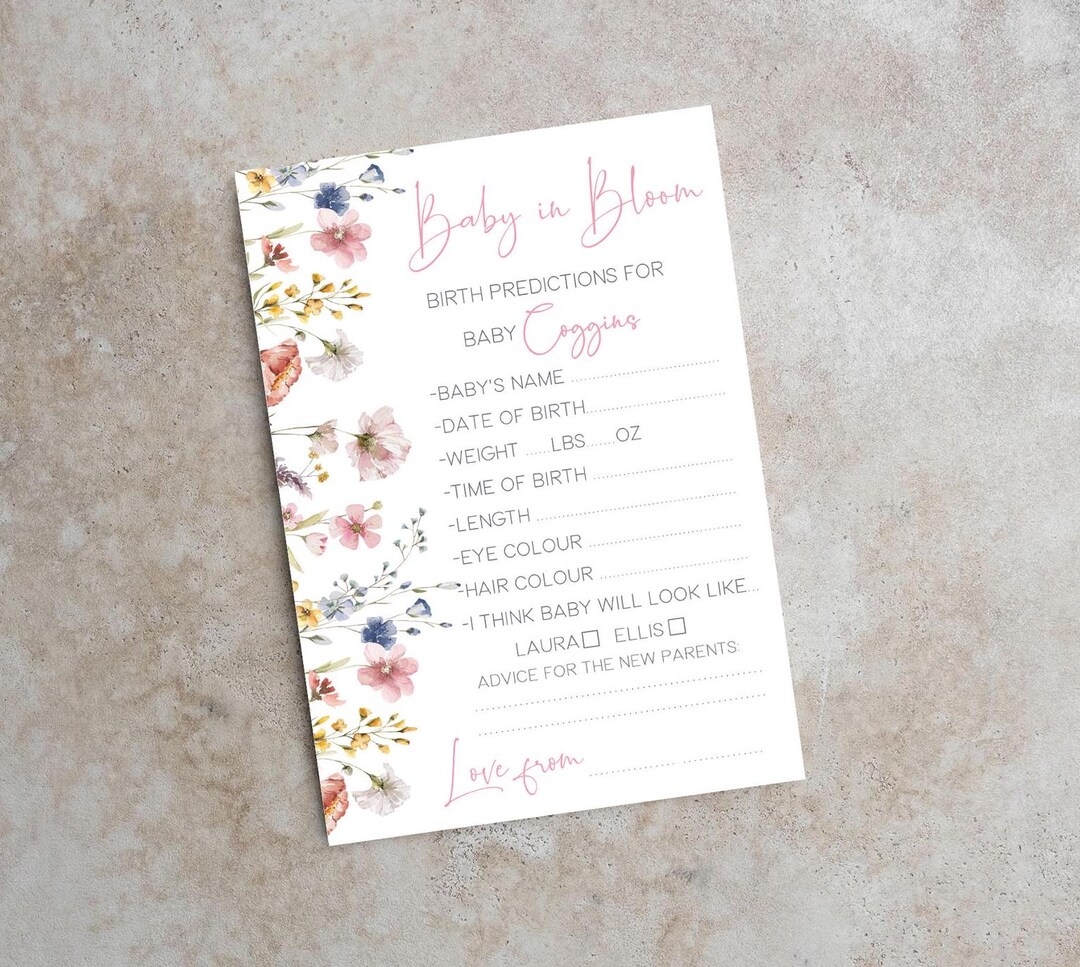 Baby in Bloom
BIRTH PREDICTIONS FOR
BABY Coggins
-BABY'S NAME ........................................
-DATE OF BIRTH......................................
-WEIGHT ......LBS.......OZ
-TIME OF BIRTH ......................................
-LENGTH ..................................................
-EYE COLOUR .......................................
-HAIR COLOUR ......................................
-I THINK BABY WILL LOOK LIKE...
LAURA☐ ELLIS☐
ADVICE FOR THE NEW PARENTS:
........................................................................
........................................................................
Love from ...........................................